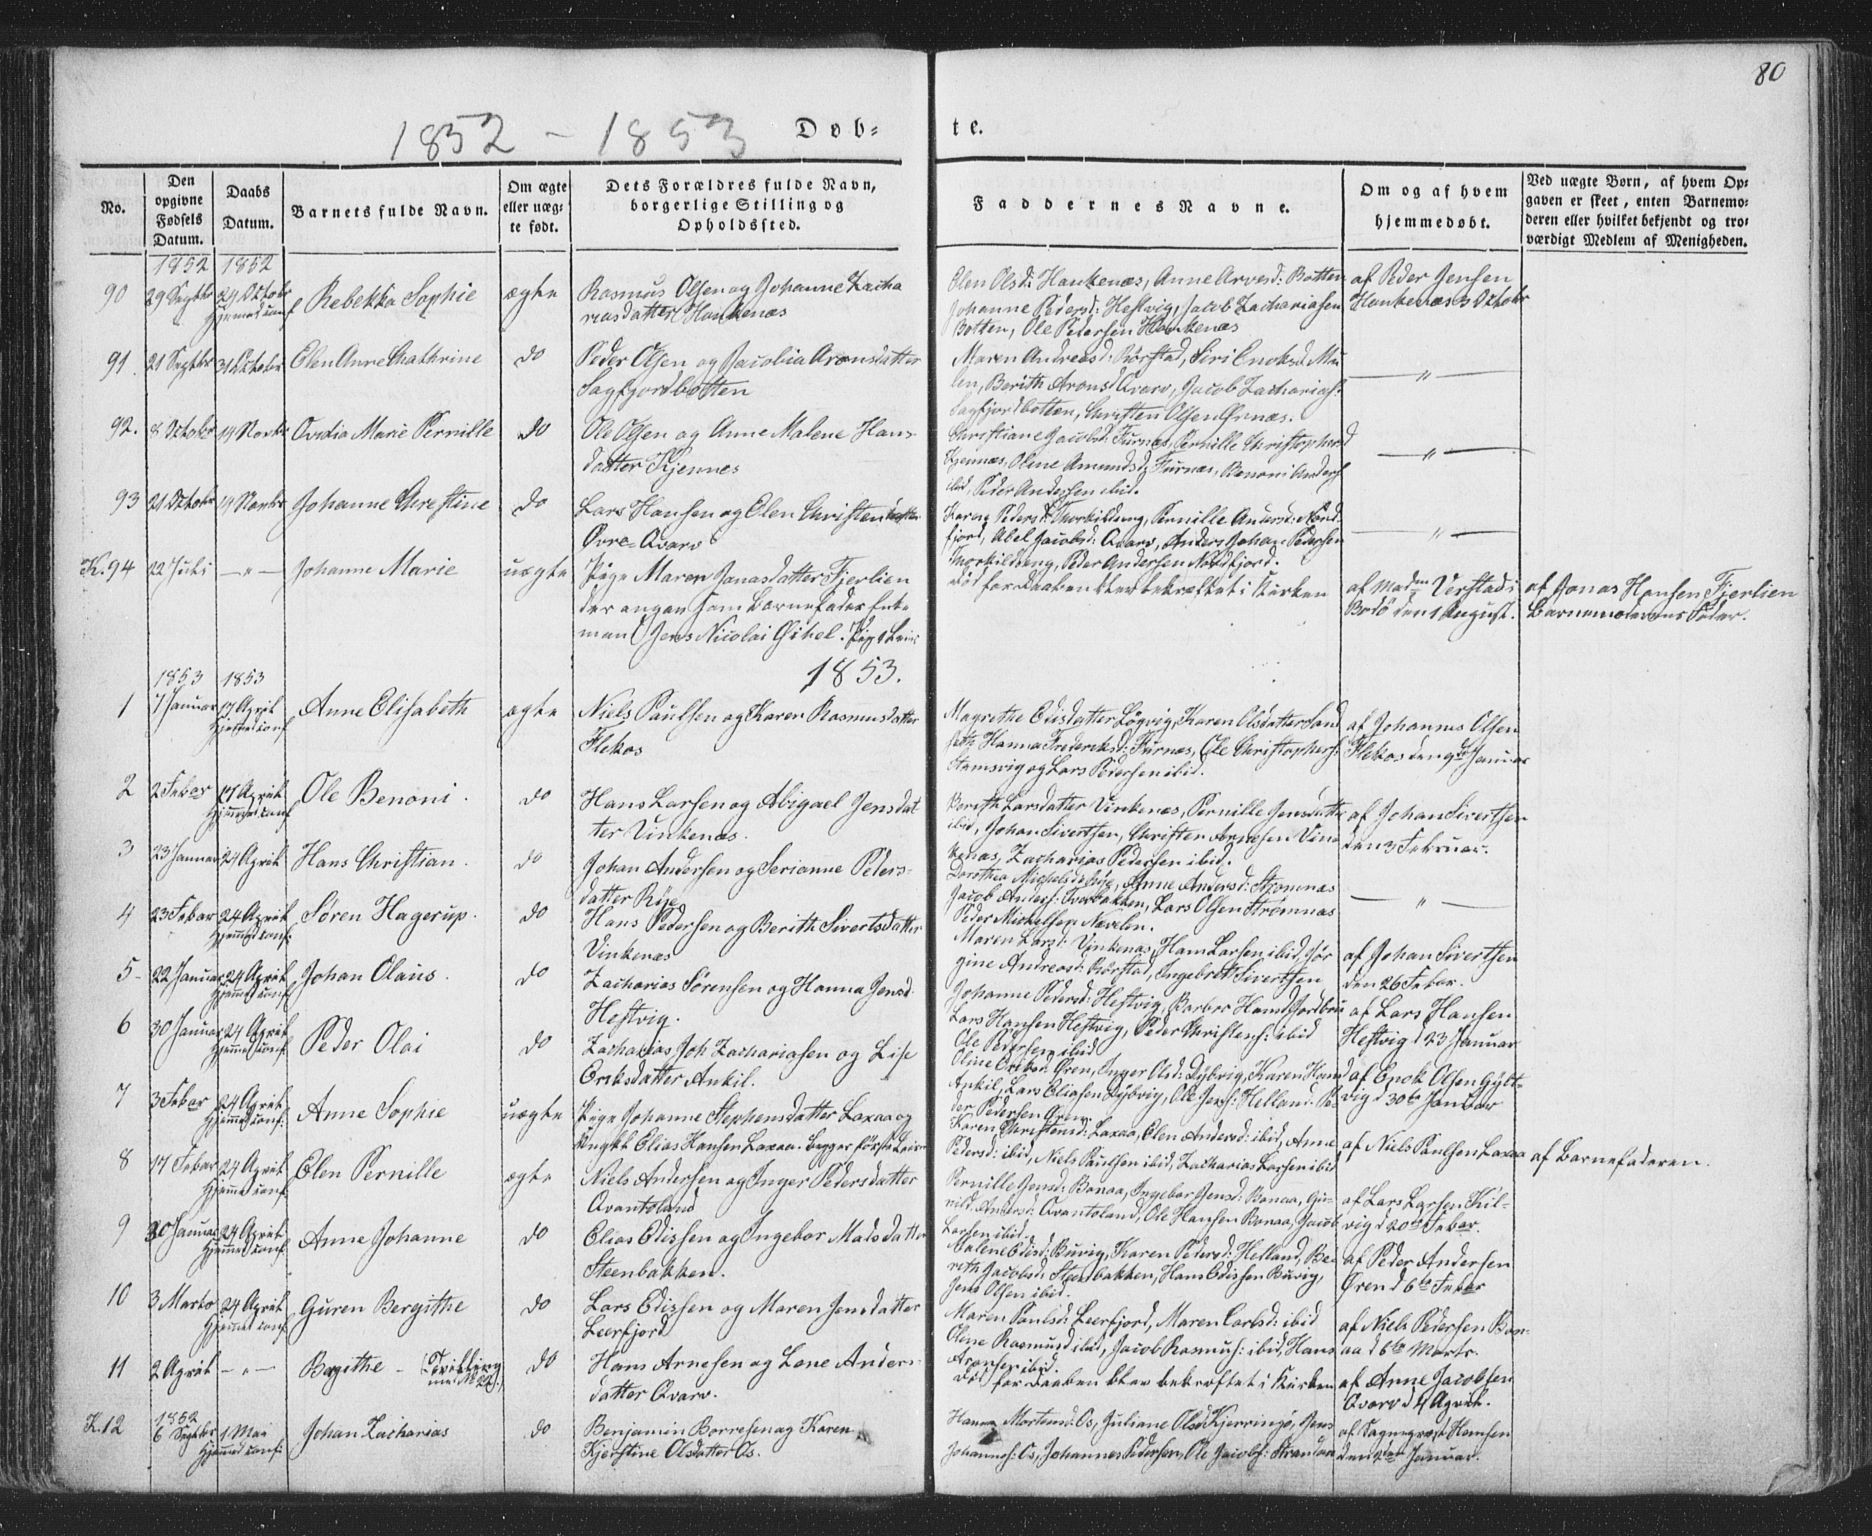 80
1852 - 1853 Døb-
te.
No.
Den opgivne Fødsels Datum.
Daabs Datum.
Barnets fulde Navn.
Om ægte eller uægte født.
Dets Forældres fulde Navn, borgerlige Stilling og Opholdssted.
Faddernes Navne.
Om og af hvem hjemmedøbt.
Ved uægte Børn, af hvem Opgaven er skeet, enten Barnemoderen eller hvilket bekjendt og troværdigt Medlem af Menigheden.
1852 1852
90 29 Septbr 24 Octobr Hjemmed conf Rebekka Sophie ægte
Rasmus Olsen og Johanne Zacha
riasdatter Haukenæs
Elen Olsd: Haukenæs, Anne Arvesd: Botten
Johanne Pedersd: Hestvig, Jacob Zachariasen
Botten, Ole Petersen Haukenæs
af Peder Jensen
Haukenæs 3 Octobr
91. 21 Septbr 31 Octobr Elen Anne Cathrine do
Peder Olsen og Jacobia Aronsdatter
Sagfjordbotten
Maren Andreasd: Rørstad, Siri Enoksd
Berith Aronsd Qvarv, Jacob Zacharias:
Sagfjordbotten, Christen Olsen Ørnæs.
— " —
92. 8 Octobr 14 Novbr Ovedia Marie Pernille do
Ole Olsen og Anne Malene Hans
datter Kjennes
Christiane Jacobsd: Furnæs, Pernille Christophersd
Kjennæs, Olene Amundsd: Furnæs, Benoni Anders:
ibid, Peder Andersen ibid.
— " —
93 21 Octobr 14 Novbr Johanne Christine do
Lars Hansen og Elen Christensdatter
Øvre-Qvarv
Karen Pedersd: Thorkildseng, Pernille Andersd: Nord
fjord, Abel Jacobsd: Qvarv, Anders Johan Pedersen
Thorkildseng, Peder Andersen Nordfjord.
— " —
K. 94 22 Juli — " — Johanne Marie uægte
Pige Maren Jonasdatter Fjerlien
der angav som Barnefader Enke
mand Jens Nicolai
død før Daaben blev bekræftet i Kirken
af Madm Verstad i
Bodø den 1 August.
af Jonas Hansen Fjerlien
Barnemoderens Fader.
1853 1853
1853.
1 7 Januar 17 April Hjemmed conf Anne Elisabeth ægte
Niels Paulsen og Karen Rasmusdatter
Flekos
Magrethe Edisdatter Løgvig, Karen Olsdatter Sand
Hanna Frederiksd: Furnæs, Ole Christophers:
Stamsvig og Lars Pedersen ibid.
af Johannes Olsen
Flekos den 9de Januar
2 2 Febar 17 April Hjemmed conf Ole Benoni. do
Hans Larsen og Abigael Jensdat
ter Vinkenæs.
Berith Larsdatter Vinkenæs, Pernille Jensdatter
ibid, Johan Sivertsen, Christen Arnesen Vin
kenæs, Zacharias Pedersen ibid.
af Johan Sivertsen
den 3 Februar.
3 23 Januar 24 April Hans Christian. do
Johan Andersen og Serianne Peters-
datter Röje
Dorothea Michelsd: Anne Andersd: Strømnæs
Jacob Anders: Tverbakken, Lars Olsen Strømnæs
Peder Michelsen
— " —
4 23 Febar 24 April Hjemmed conf Søren Hagerup. do
Hans Pedersen og Berith Sivertsdatter
Vinkenæs
Maren Larsd: Vinkenæs, Hans Larsen ibid, Jør
gine Andreasd: Rørstad, Ingebret Sivertsen
af Johan Sivertsen
den 26 Febar.
5 22 Januar 24 April Hjemmed conf Johan Olaus. do
Zacharias Sørensen og Hanna Jensd.
Hestvig.
Johanne Pedersd: Hestvig, Barbro Hansd
Lars Hansen Hestvig, Peder Christens: ibid
Ole Pedersen ibid
af Lars Hansen
Hestvig d 23 Januar
6 30 Januar 24 April Hjemmed conf Peder Olai do
Zacharias Joh Zachariasen og Lise
Eriksdatter Ankil.
Oline Eriksd: Øren, Inger Olsd: Dybvig, Karen Hansd
Ankil, Lars Eliasen Dybvig, Ole Jens: Helland. Pe-
der Pedersen Øren
af Enok Olsen Gylt-
vig d 30te Januar
7 3 Febar 24 April Hjemmed conf: Anne Sophie uægte
Pige Johanne Stephensdatter Laxaa og
Ungkl Elias Hansen Laxaa. begges første Leier
Karen Christensd: Laxaa, Elen Andersd: ibid, Anne
Pedersd: ibid, Niels Paulsen ibid, Zacharias Larsen ibid
af Niels Paulsen Laxaa
af Barnefaderen.
8 17 Febar 24 April Hjemmed conf Elen Pernille ægte
Niels Andersen og Inger Pedersdatter
Qvantoland
Pernille Jensd: Bonaa, Ingebor Jensd: Bonaa, Gu-
nild Andersd: Qvantoland, Ole Hansen Bonaa, Jacob
Larsen ibid.
af Lars Larsen Kil-
vig d 20de Febar.
9 30 Januar 24 April Hjemmed conf Anne Johanne do
Elias Edissen og Ingebor Matsdatter
Steenbakken.
Malene Edisd: Buvig, Karen Pedersd: Helland, Be-
reth Jacobsd: Steenbakken, Hans Edissen Buvig,
Jens Olsen ibid.
af Peder Andersen
Øren d 6te Febar
10 3 Marts 24 April Hjemmed conf Guren Bergithe do
Lars Edissen og Maren Jensdatter
Leerfjord
Maren Paulsd: Leerfjord, Maren Carlsd: ibid
Oline Rasmusd ibid, Jacob Rasmus: ibid, Hans
Aronsen ibid.
af Niels Pedersen Bon-
aa d 6te Marts.
11 2 April — " — Bergithe - (Tvilling med No 29) do
Hans Arnesen og Lene Anders-
datter Qvarv.
død før Daaben blev bekræftet i Kirken
af Anne Jacobsen
Qvarv d 4 April.
K. 12 1852 6 Septbr 1 Mai Hjemmed conf: Johan Zacharias do
Benjamin Borresen og Karen
Kjerstine Olsdatter Os.
Hanna Mortensd: Os, Juliane Olsd Kjerringø, Jens
Johannes: Os, Johannes Pedersen, Ole Jacobs: Strandaa
af Sognepræst Hansen
den Januar.